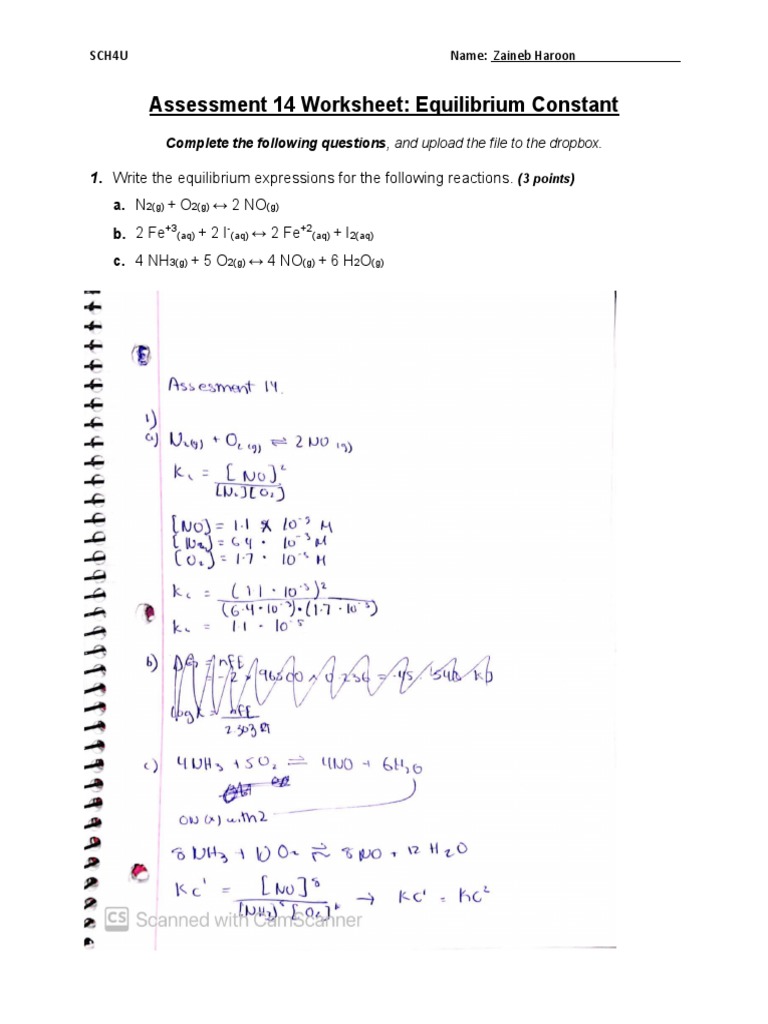 SCH4U Name: Zaineb Haroon
Assessment 14 Worksheet: Equilibrium Constant
Complete the following questions, and upload the file to the dropbox.
1. Write the equilibrium expressions for the following reactions. (3 points)
a. N2(g) + O2(g) ↔ 2 NO(g)
b. 2 Fe+3(aq) + 2 I-(aq) ↔ 2 Fe+2(aq) + I2(aq)
c. 4 NH3(g) + 5 O2(g) ↔ 4 NO(g) + 6 H2O(g)
Assesment 14.
1)
a) N2(g) + O2 (g) ⇌ 2 NO (g)
Kc = [NO]²
[N2][O2]
[NO] = 1.1 × 10⁻⁵ M
[N2] = 6.4 · 10⁻³ M
[O2] = 1.7 · 10⁻⁵ M
Kc = (1.1 · 10⁻⁵)²
(6.4 · 10⁻³) · (1.7 · 10⁻⁵)
Kc = 1.1 · 10⁻⁵
b) = nFE
= -2 × 96500 × 0.236 = -45.548 kJ
log K = nFE
2.303 RT
c) 4NH3 + 5O2 ⇌ 4NO + 6H2O
ON (x) with 2
8 NH3 + 10 O2 ⇌ 8 NO + 12 H2O
Kc' = [NO]⁸ → Kc' = Kc²
[NH3] [O2]
CS Scanned with CamScanner